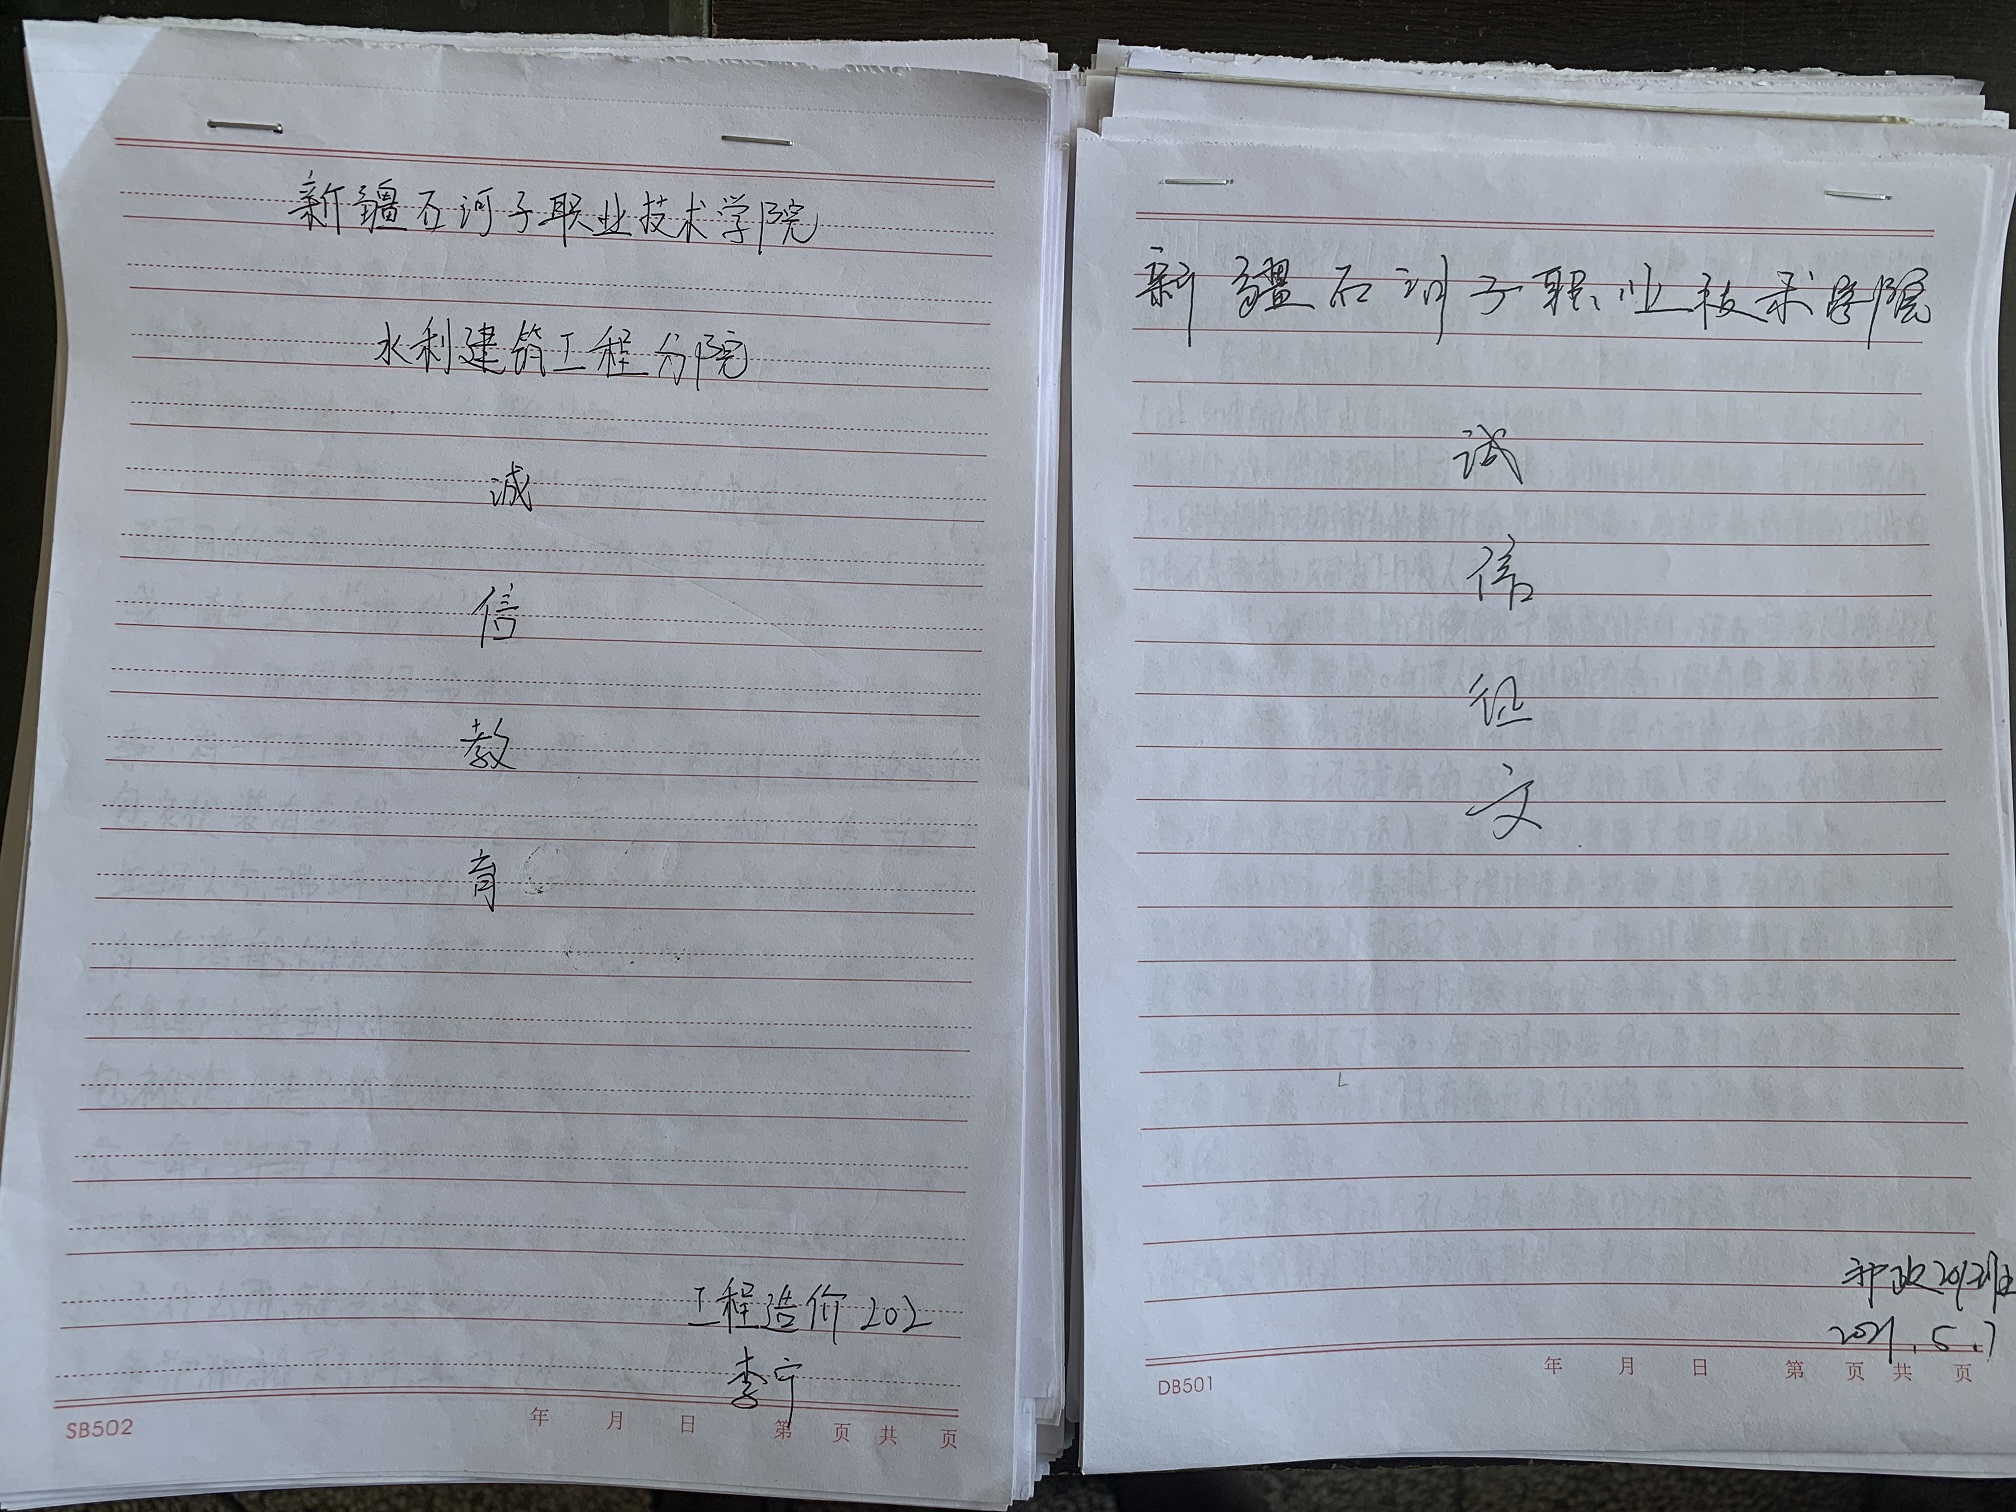 新疆石河子职业技术学院
水利建筑工程分院
诚
信
教
育
工程造价202
李宁
SB502
年 月 日 第 页 共 页
新疆石河子职业技术学院
诚
信
征
文
201班
2021.5.7
DB501
年 月 日 第 页 共 页